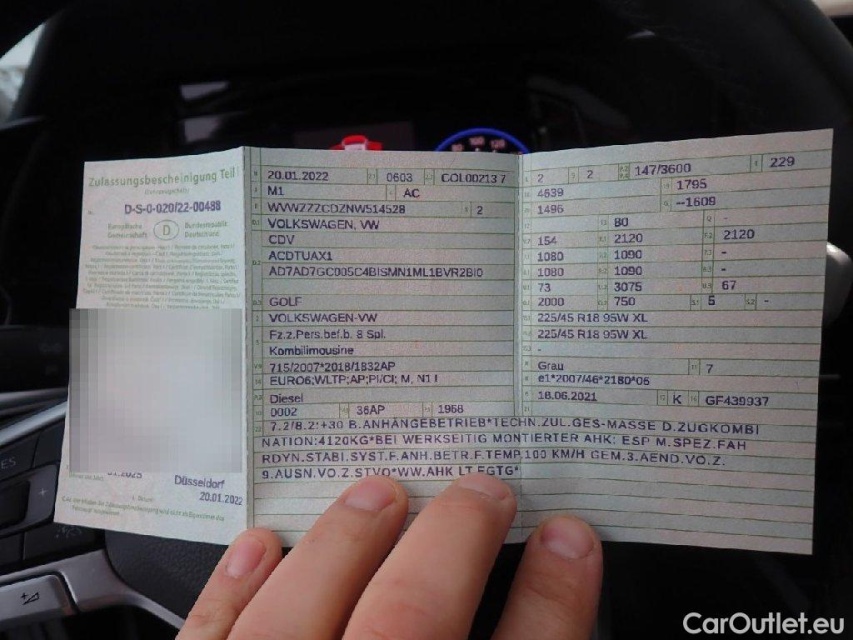 Zulassungsbescheinigung Teil I
D-S-0-020/22-00488
Europäische Gemeinschaft D Bundesrepublik Deutschland
Düsseldorf
20.01.2022
20.01.2022 0603 COL002137
M1 AC
WVWZZZCDZNW514528 2
VOLKSWAGEN, VW
CDV
ACDTUAX1
AD7AD7GC005C4BISMN1ML1BVR2BI0
GOLF
VOLKSWAGEN-VW
Fz.z.Pers.bef.b. 8 Spl.
Kombilimousine
715/2007*2018/1832AP
EURO6;WLTP;AP;PI/CI; M, N1 I
Diesel
0002 36AP 1968
2 2 147/3600 229
4639 1795
1496 --1609
80 -
154 2120 2120
1080 1090 -
1080 1090 -
73 3075 67
2000 750 5 -
225/45 R18 95W XL
225/45 R18 95W XL
-
Grau 7
e1*2007/46*2180*06
18.06.2021 K GF439937
7.2/8.2:+30 B.ANHÄNGEBETRIEB*TECHN.ZUL.GES-MASSE D.ZUGKOMBI
NATION:4120KG*BEI WERKSEITIG MONTIERTER AHK: ESP M.SPEZ.FAH
RDYN.STABI.SYST.F.ANH.BETR.F.TEMP.100 KM/H GEM.3.AEND.VO.Z.
9.AUSN.VO.Z.STVO*WW.AHK LT.EGTG*
CarOutlet.eu